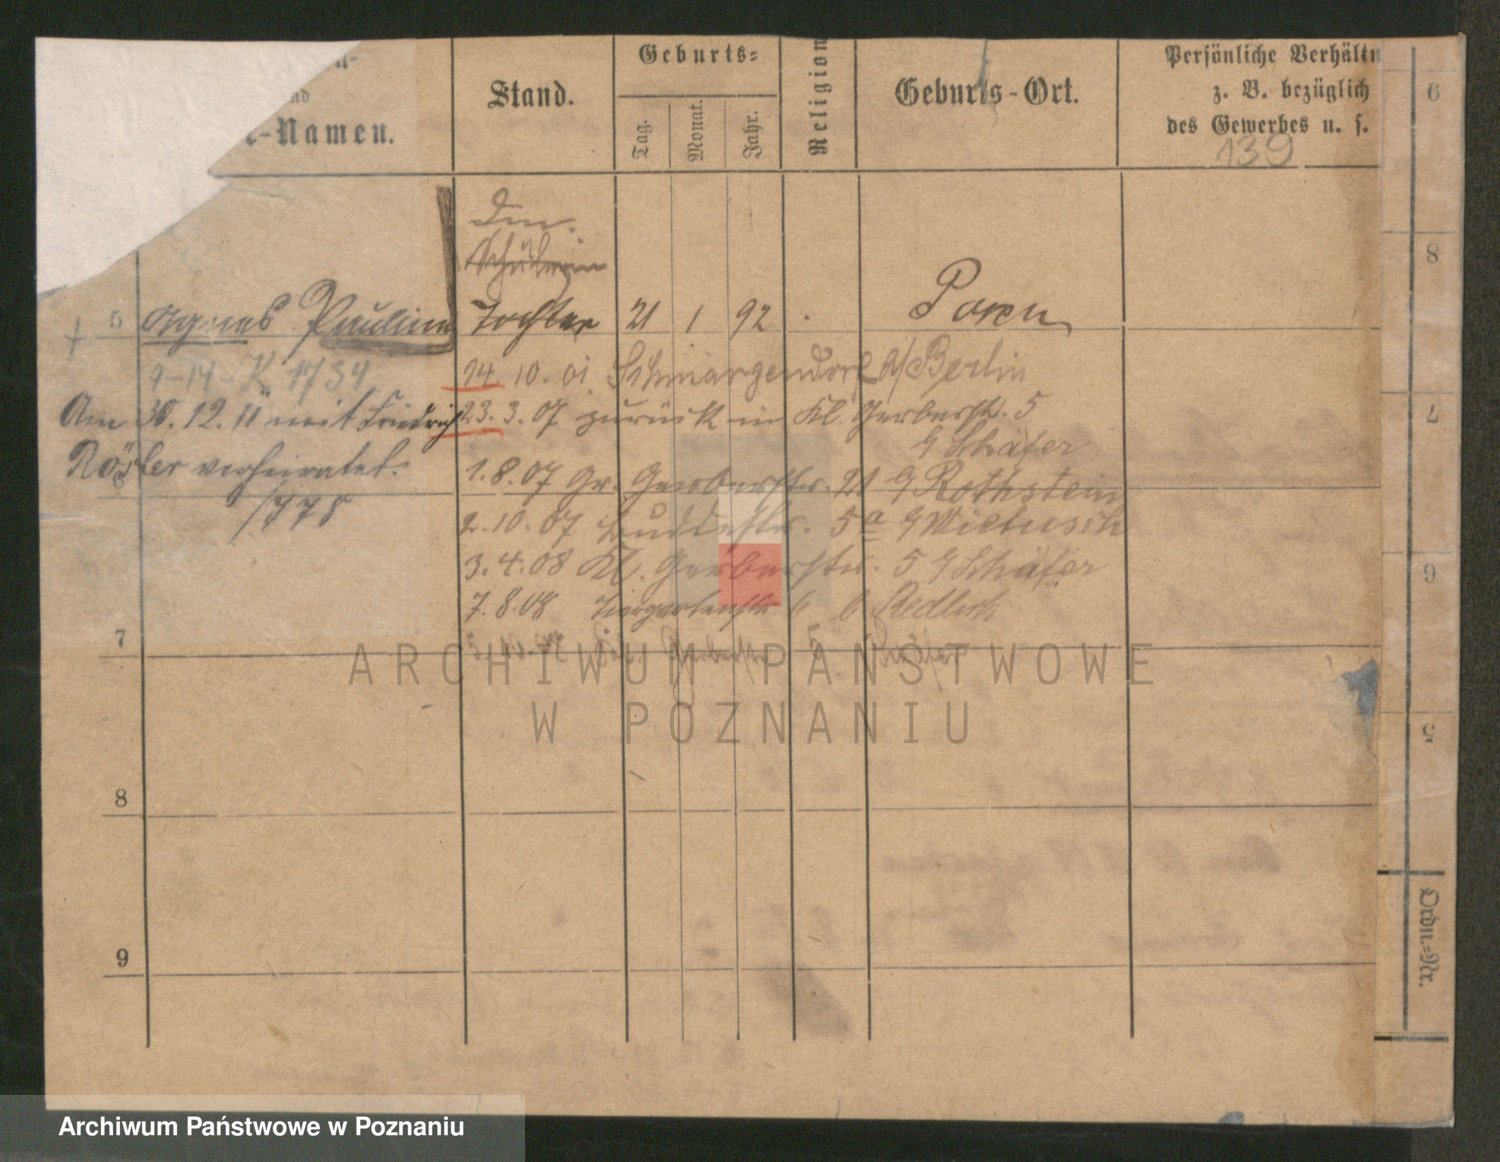 -Namen.
Stand.
Geburts-
Tag.
Monat.
Jahr.
Religion
Geburts-Ort.
Persönliche Verhältn
z. B. bezüglich
des Gewerbes u. s.
139
Schülerin
5 Agnes Pauline Tochter 21 1 92 Posen
9-14 K 1734
14. 10. 01 Schmargendorf b/Berlin
Am 30. 12. 11 mit Friedrich
23. 3. 07 zurück in Kl. Gerberstr. 5
b/ Schäfer
Rösler verheiratet.
1778
1. 8. 07 Gr. Gerberstr. 21 b/ Rothstein
2. 10. 07 Buddestr. 5a b/
3. 4. 08 Kl. Gerberstr. 5 b/ Schäfer
7. 8. 08 Tiergartenstr. 6 b Redlich
7
8
9
6
8
7
6
5
Ordn.-Nr.
ARCHIWUM PAŃSTWOWE
W POZNANIU
Archiwum Państwowe w Poznaniu